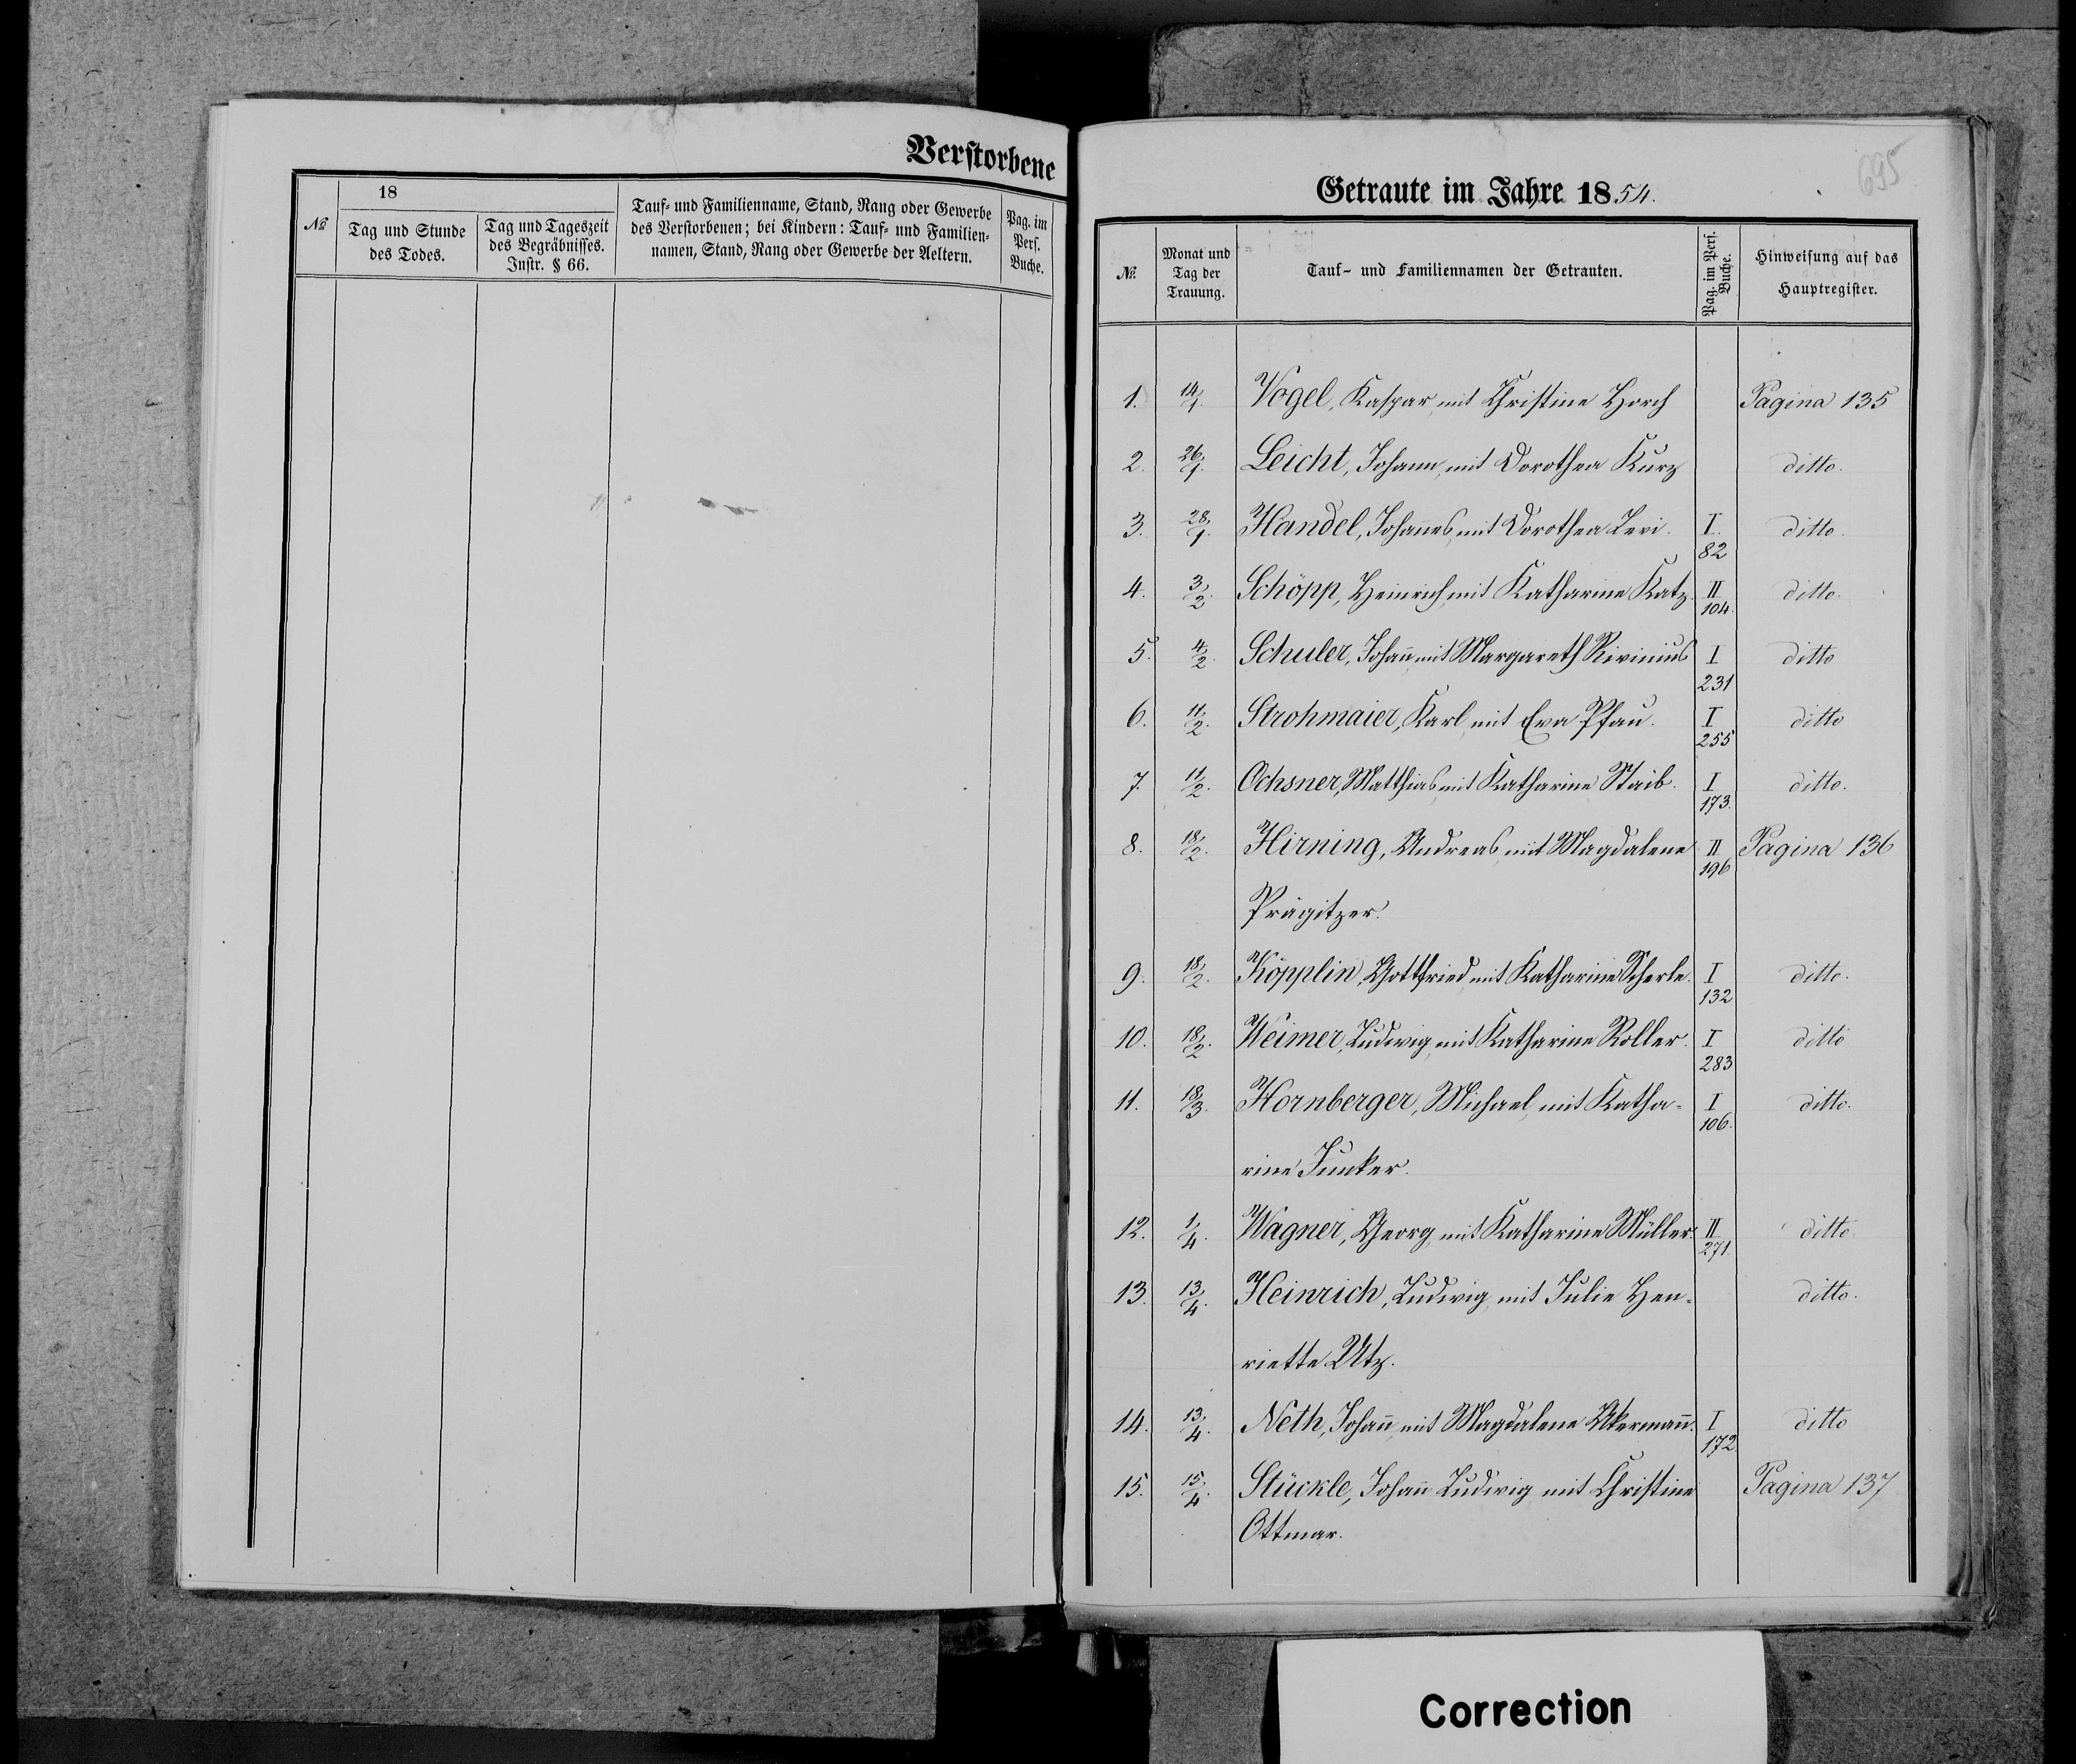 Verstorbene
№
18
Tag und Stunde des Todes.
Tag und Tageszeit des Begräbnisses. Instr. § 66.
Tauf- und Familienname, Stand, Rang oder Gewerbe
des Verstorbenen; bei Kindern: Tauf- und Familien-
namen, Stand, Rang oder Gewerbe der Aeltern.
Pag. im Pers. Buche.
695
Getraute im Jahre 1854.
№.
Monat und Tag der Trauung.
Tauf- und Familiennamen der Getrauten.
Pag. im Pers. Buche.
Hinweisung auf das Hauptregister.
1. 14/1. Vogel, Kaspar mit Christine Horch Pagina 135
2. 26/1. Leicht, Johann, mit Dorothea Kurz ditto.
3. 28/1. Handel, Johannes, mit Dorothea Levi. I. 82 ditto.
4. 3/2. Schöpp, Heinrich, mit Katharine Katz. II 104. ditto.
5. 4/2. Schuler, Johann mit Margareth Rivinius I 231 ditto
6. 11/2. Strohmaier, Karl, mit Eva Pfau. I 255 ditto
7. 11/2. Ochsner, Matthias mit Katharine Staib. I 173. ditto.
8. 18/2. Hirning, Andreas, mit Magdalene II 196 Pagina 136
Prägitzer.
9. 18/2. Köpplin, Gottfried, mit Katharine Scherle. I 132 ditto.
10. 18/2. Weimer, Ludwig, mit Katharine Roller. I 283 ditto
11. 18/3. Hornberger, Michael, mit Katha- I 106. ditto.
rine Junker.
12. 1/4. Wagner, Georg, mit Katharine Müller. II 271. ditto.
13. 13/4. Heinrich, Ludwig, mit Julie Hen- ditto.
riette Utz.
14. 13/4. Neth, Johann, mit Magdalene Akermann. I 172. ditto
15. 15/4. Stückle, Johann Ludwig mit Christine Pagina 137
Ottmar.
Correction